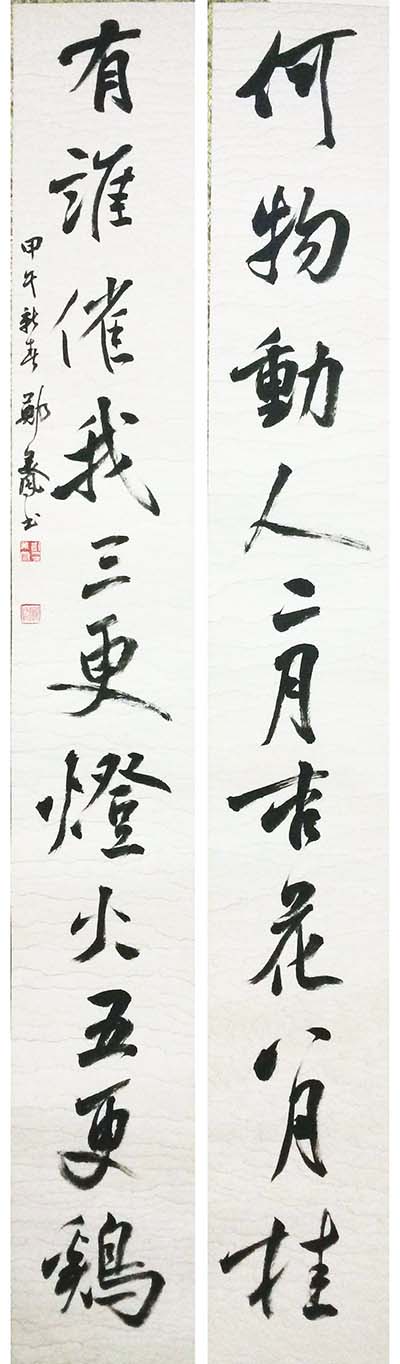 何物動人二月杏花八月桂
有誰催我三更燈火五更鷄
甲午新春鄭
書